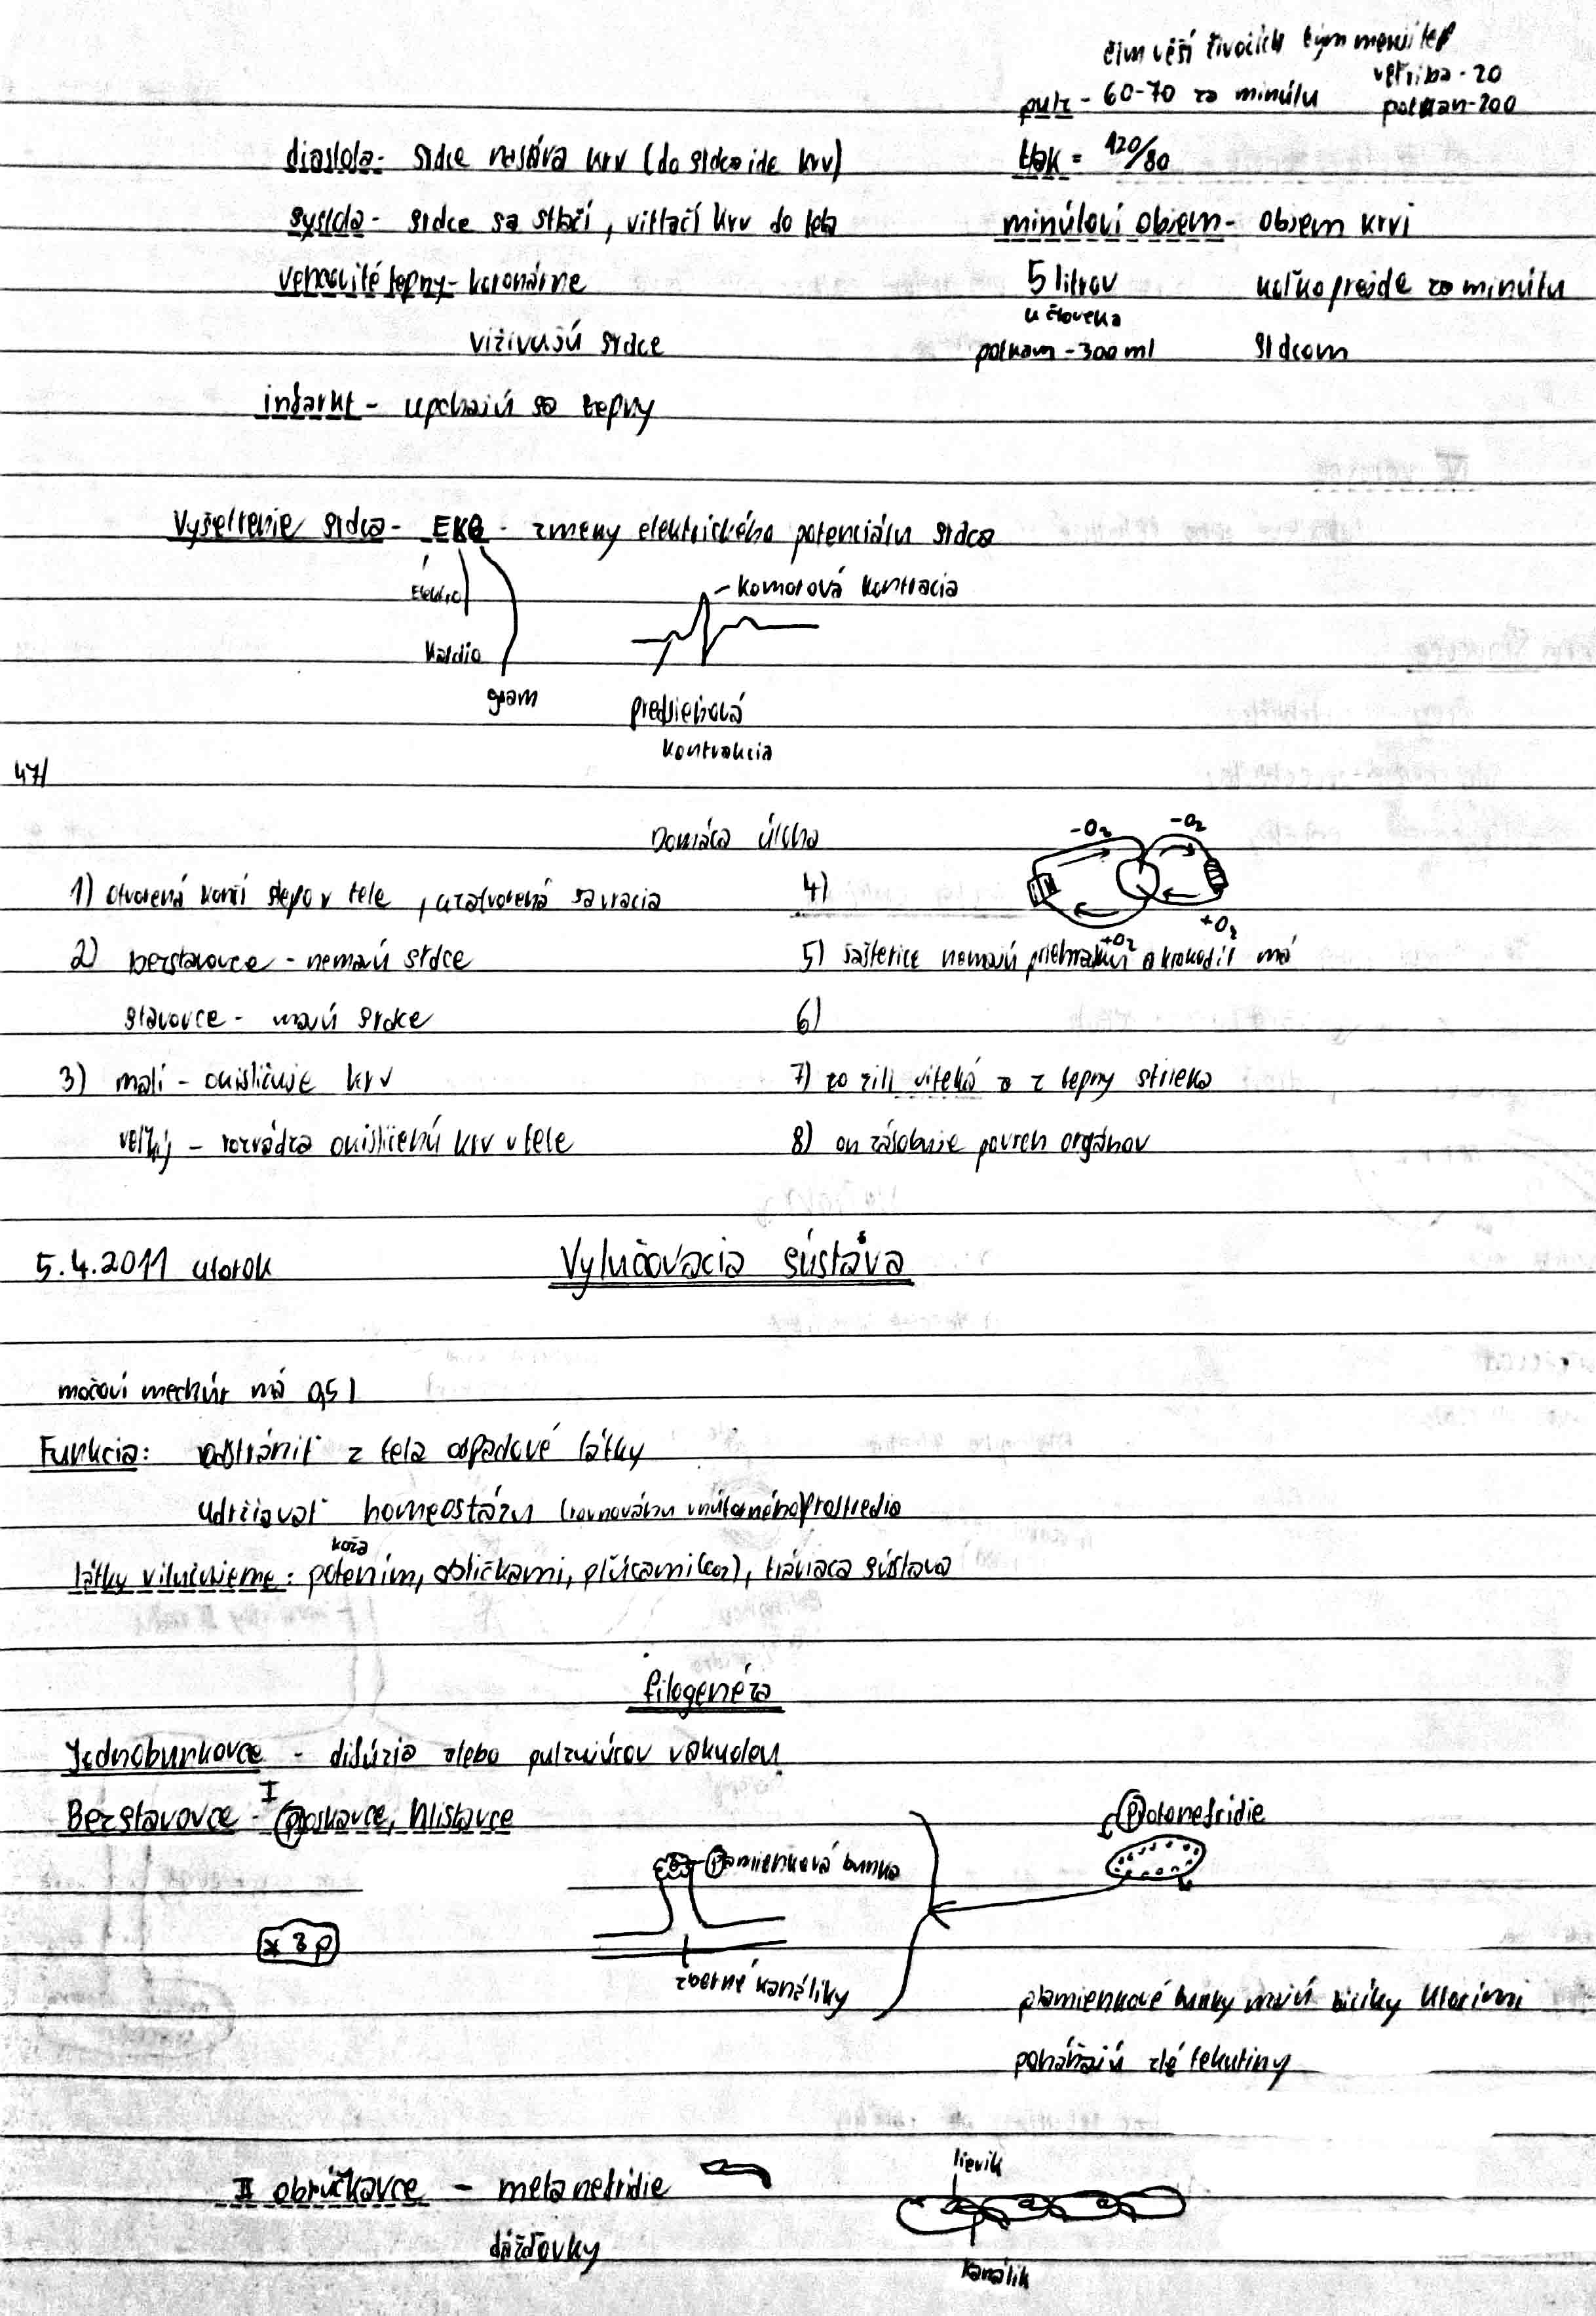 čím věší živočích tým menší tep
veľriba - 20
pulz - 60-70 za minútu
potkan-200
diastola - srdce nasáva krv (do srdca ide krv)
tlak = 120/80
systola - srdce sa stlačí, vitlačí krv do tela
minútoví objem - objem krvi
vencovité tepny - koronárne
5 litrov
koľko prejde za minútu
u človeka
viživujú srdce
potkan - 300 ml
srdcom
infarkt - upchajú sa tepny
Vyšetrenie srdca - EKG - zmeny elektrického potenciálu srdca
Elektro
- komorová kontracia
Kardio
gram
predsieňová
kontrakcia
47/
Domáca úloha
-O2
-O2
1) otvorená končí slepo v tele, uzatvorená sa vracia
4)
+O2
+O2
2) bezstavovce - nemajú srdce
5) jašterice nemajú priehradku a krokodíl má
stavovce - majú srdce
6)
3) malí - okisličuje krv
7) zo žili viteká a z tepny strieka
veľký - rozvádza okisličenú krv v tele
8) on zásobuje povrch orgánov
5.4.2011 utorok
Vylučovacia sústava
močoví mechúr má 0,5 l
Funkcia: odstrániť z tela odpadové látky
udržiavať homeostázu (rovnováhu vnútorného prostredia
koža
látky vilučujeme: potením, obličkami, pľúcami (CO2), tráviaca sústava
filogenéza
Jednobunkovce - difúzia alebo pulzujúcou vakuolou
Bezstavovce - I ploskavce, hlístavce
Protonefridie
Plamienková bunka
x 3 p
zberné kanáliky
plamienkové bunky majú bičíky ktorími
poháňajú zlé tekutiny
II obrúčkavce - metanefridie
lievik
dážďovky
kanálik